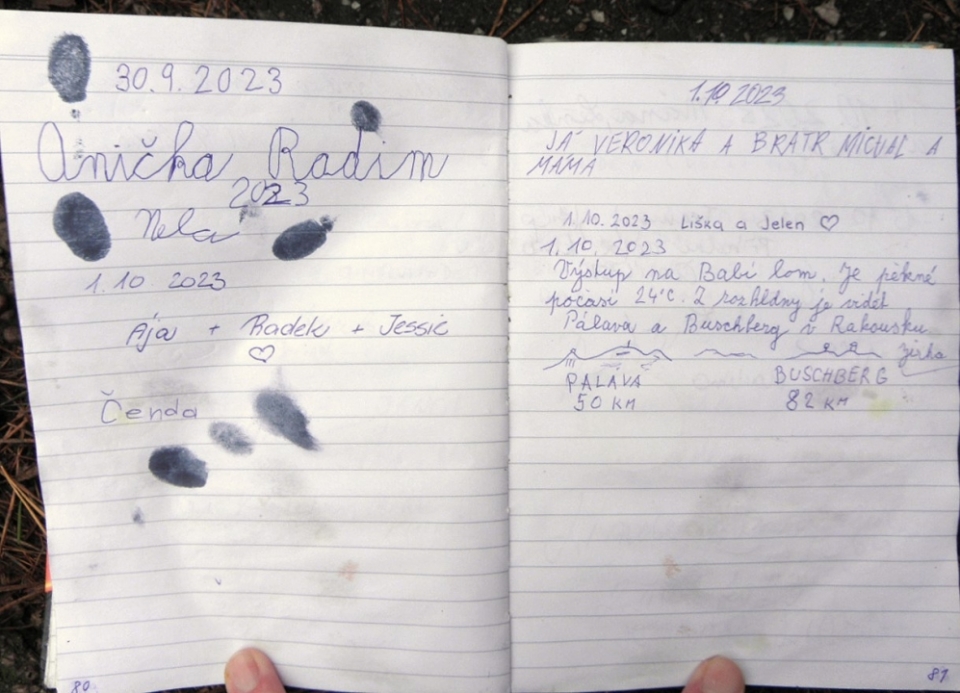 30.9.2023
Anička Radim
2023
Nela
1.10.2023
Ája + Radek + Jessie
♡
Čenda
80
1.10.2023
JÁ VERONIKA A BRATR MICHAL A
MAMA
1.10.2023 Liška a Jelen ♡
1.10.2023
Výstup na Babí lom. Je pěkné
počasí 24°C. Z rozhledny je vidět
Pálava a Buschberg v Rakousku
Jirka
PÁLAVA BUSCHBERG
50 KM 82 KM
81